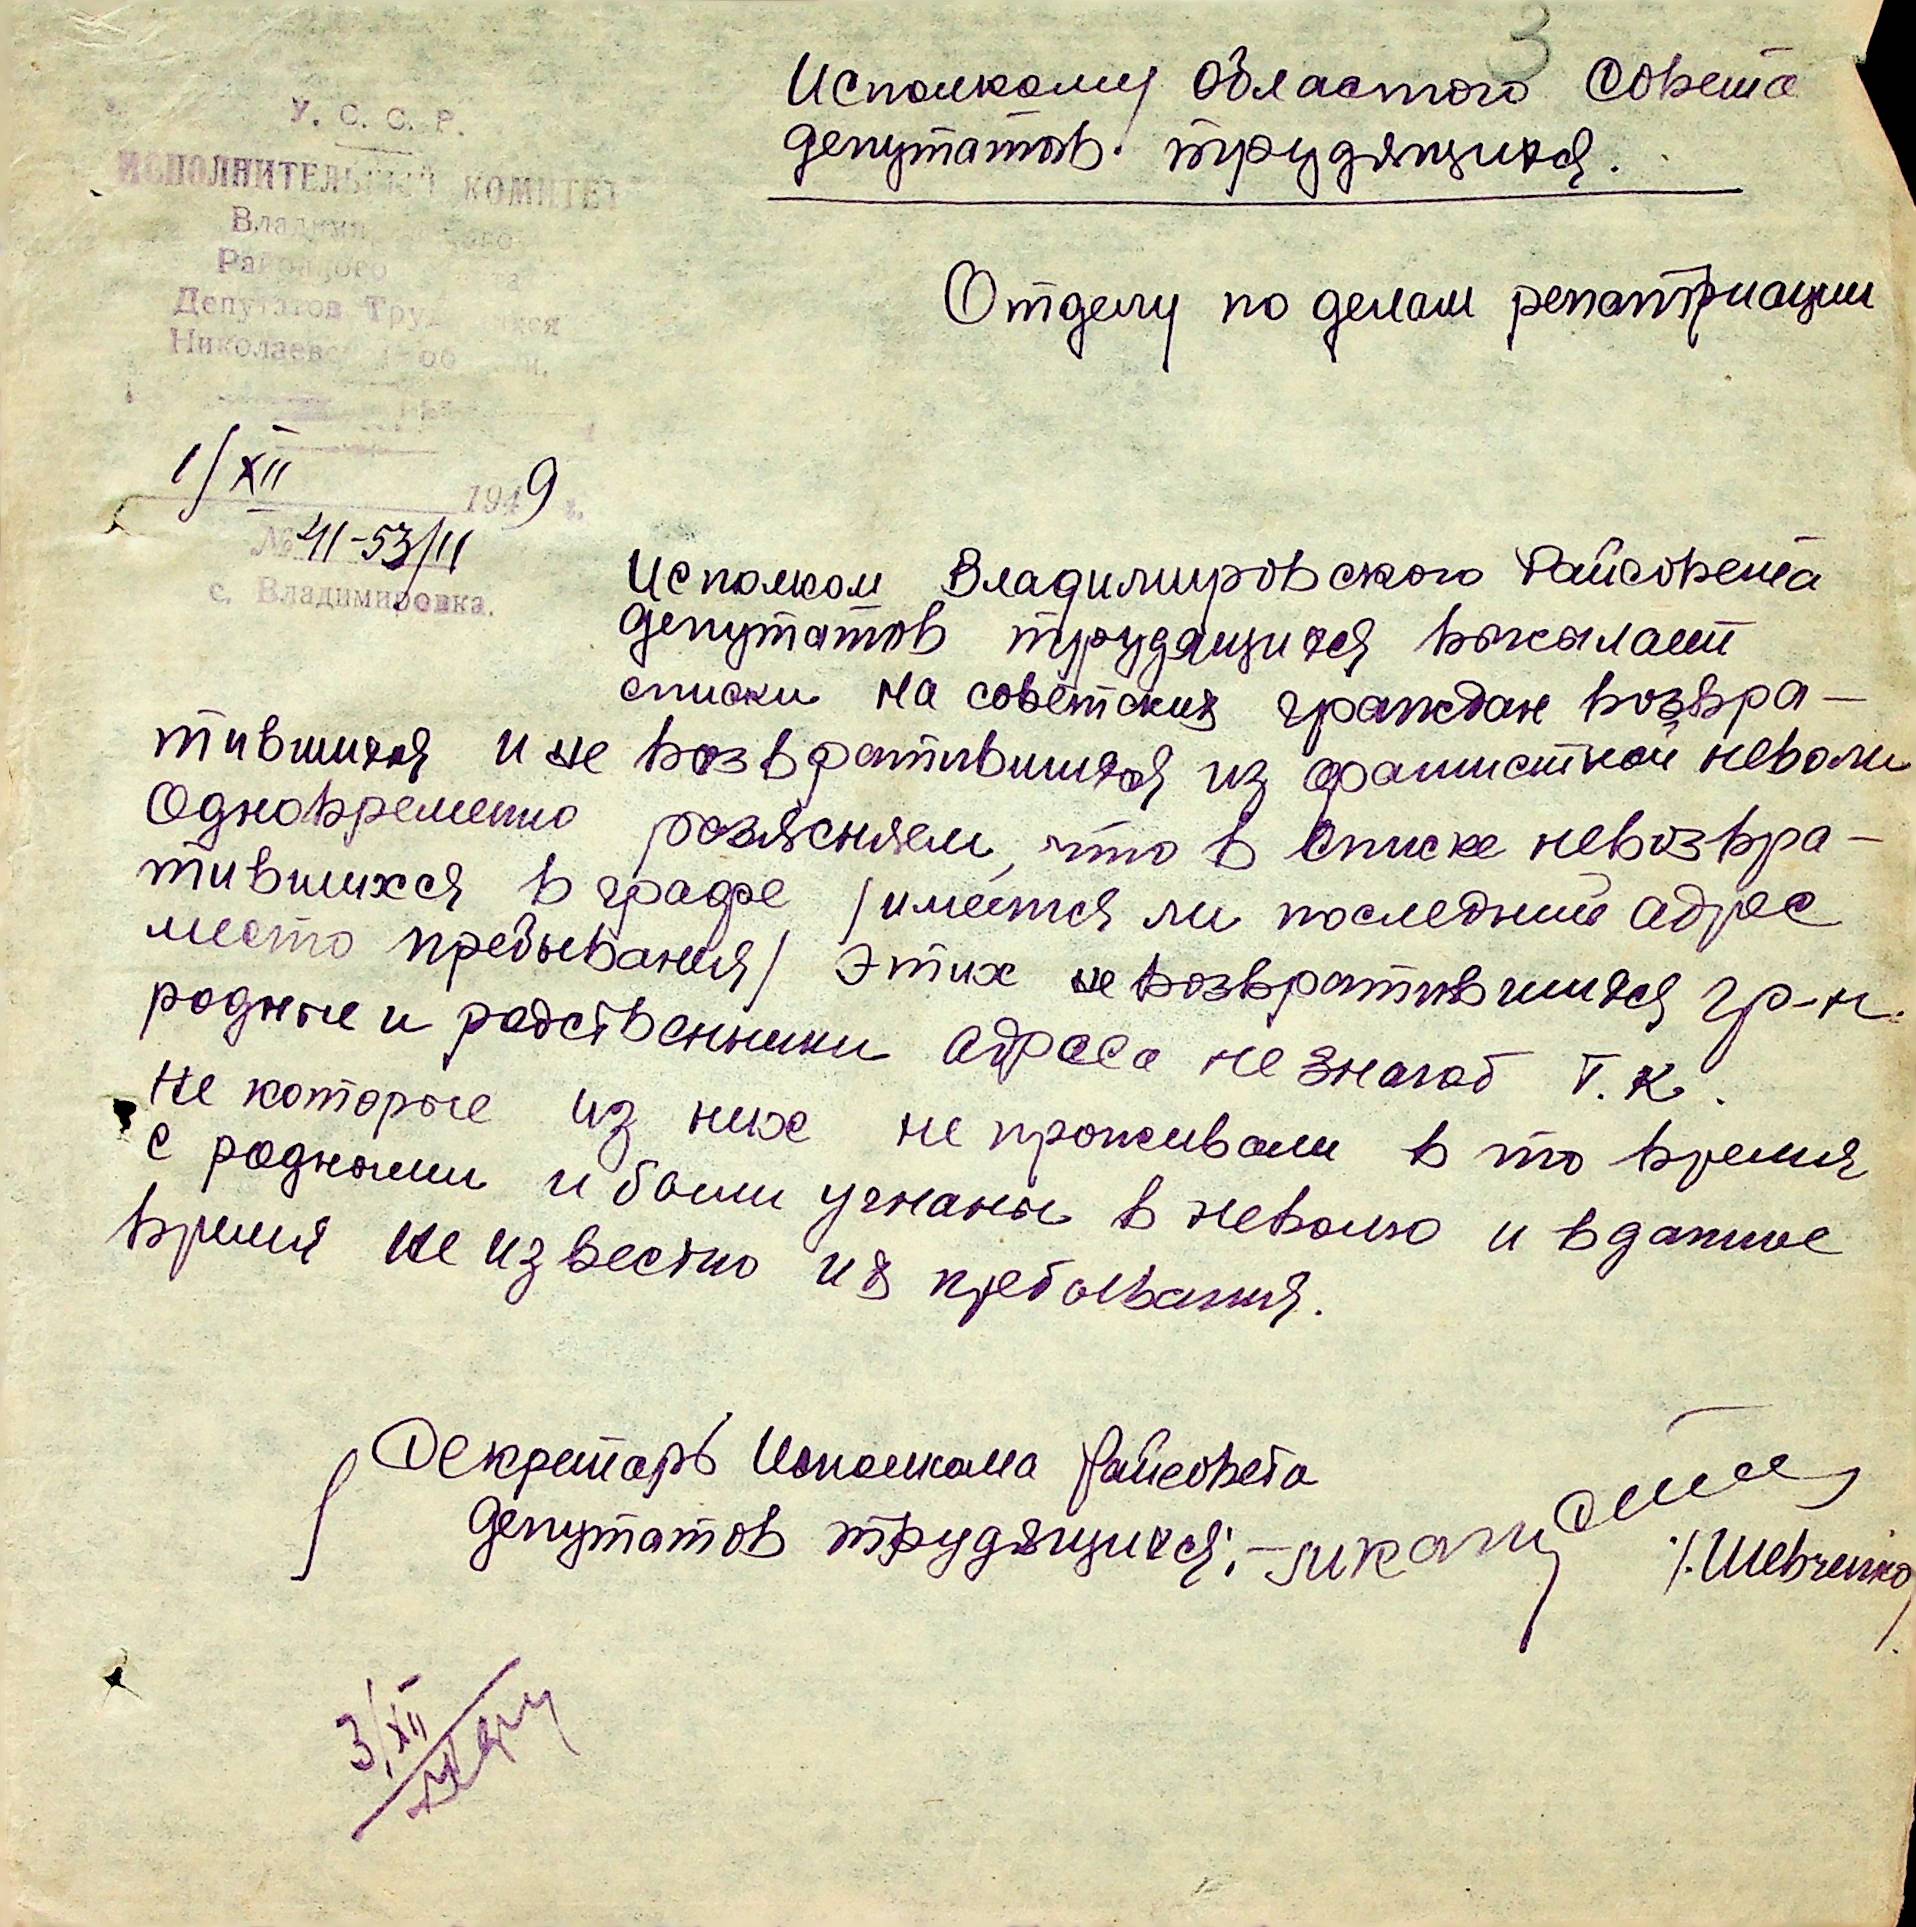 3
Исполкому Областого Совета
депутатов трудящихся.
Отделу по делам репатриации
У. С. С. Р.
ИСПОЛНИТЕЛЬНЫЙ КОМИТЕТ
Районного
Депутатов Трудящихся
1/XII 1949 г.
№ 41-53/11
с. Владимировка.
Исполком Владимировского Райсовета
депутатов трудящихся высылает
списки на советских граждан возвра-
тившихся и не возвратившихся из фашисткой неволи
Одновременно розясняем, что в списке невозвра-
тившихся в графе /имеется ли последний адрес
место пребывания/ Этих не возвратившихся гр-н.
родные и родственники адреса не знают т.к.
не которые из них не проживали в то время
с родными и были угнаны в неволю и в данное
время не известно их пребывания.
Секретарь Исполкома Райсовета
депутатов трудящихся:-
/.Шевченко/
3/XII